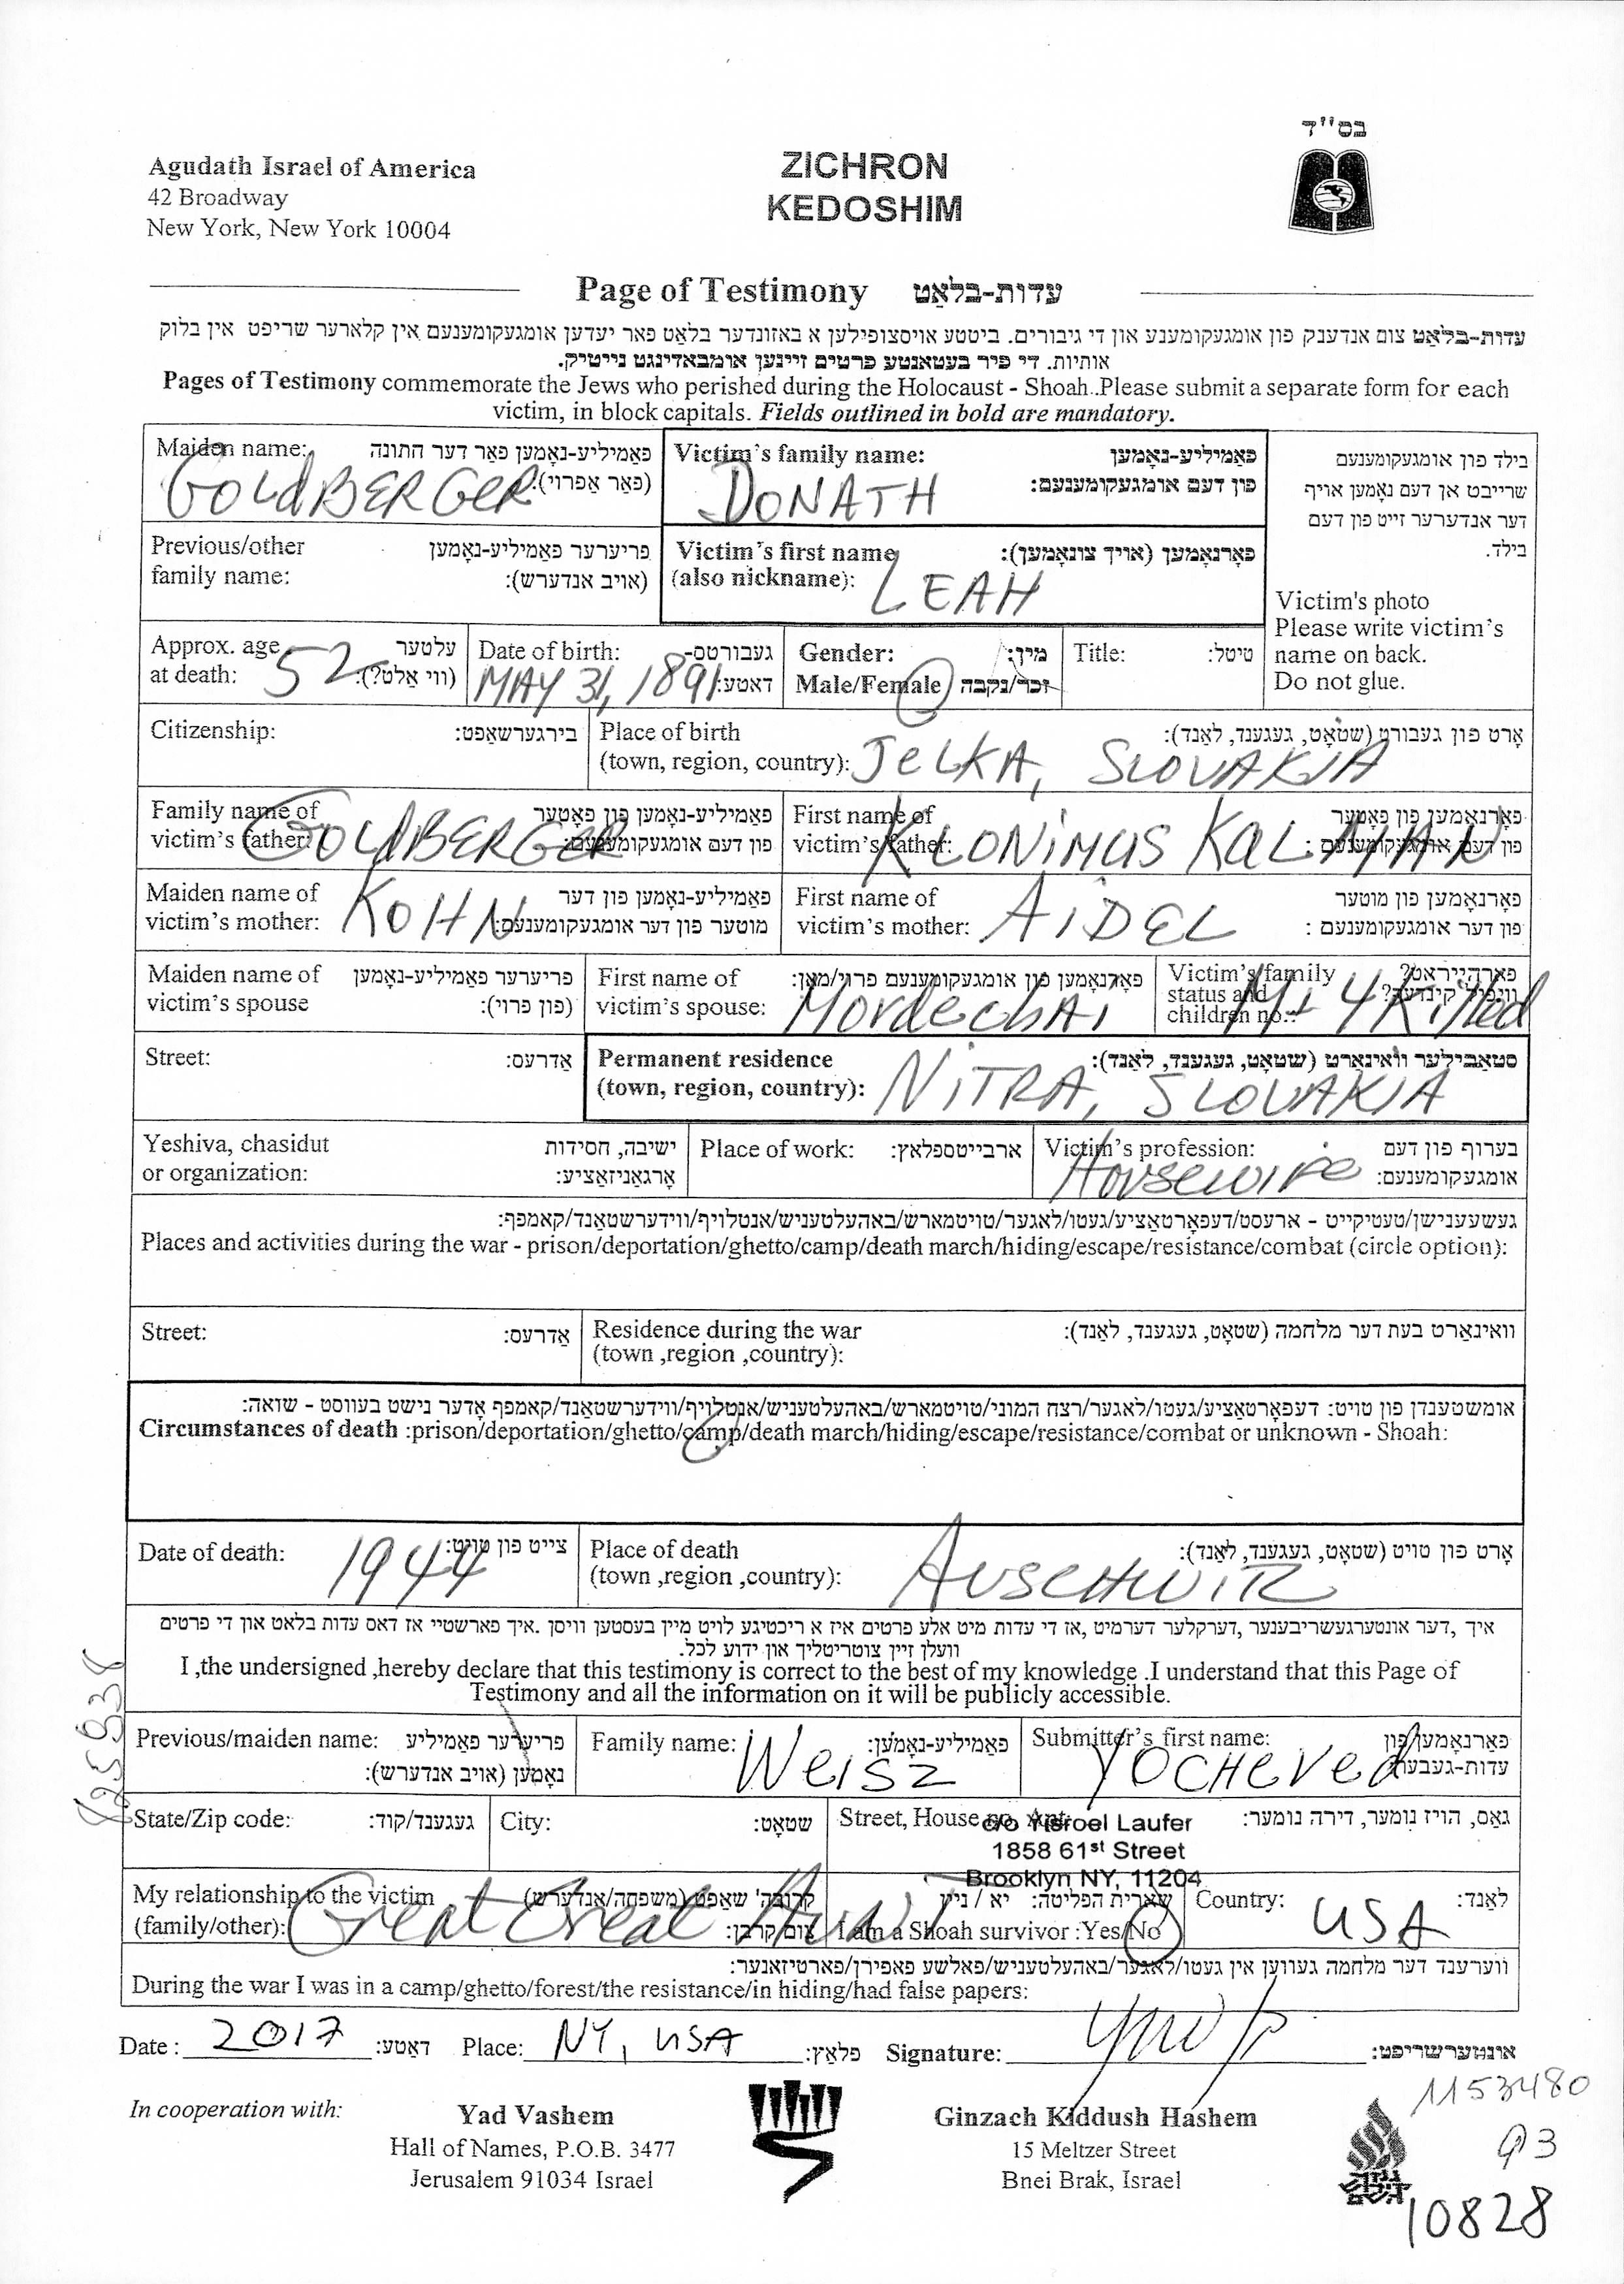 בס"ד
Agudath Israel of America
42 Broadway
New York, New York 10004
ZICHRON
KEDOSHIM
Page of Testimony עדות-בלאַט
עדות-בלאַט צום אנדענק פון אומגעקומענע און די גיבורים. ביטטע אויסצופילען א באזונדער בלאט פאר יעדען אומגעקומענעם אין קלארער שריפט אין בלוק
אותיות. די פיר בעטאנטע פרטים זיינען אומבאדינגט נייטיק.
Pages of Testimony commemorate the Jews who perished during the Holocaust - Shoah..Please submit a separate form for each
victim, in block capitals. Fields outlined in bold are mandatory.
Maiden name: פאַמיליע-נאָמען פאַר דער חתונה
(פאַר אַפרוי):
GOLdBERGER
Victim's family name: פאַמיליע-נאָמען
פון דעם אומגעקומענעם:
DONATH
בילד פון אומגעקומענעם
שרייבט אן דעם נאָמען אויף
דער אנדערער זייט פון דעם
בילד.
Victim's photo
Please write victim's
name on back.
Do not glue.
Previous/other פריערער פאַמיליע-נאָמען
family name: (אויב אנדערש):
Victim's first name פאָרנאָמען (אויך צונאָמען):
(also nickname): LEAH
Approx. age עלטער
at death: 52 (ווי אַלט?):
Date of birth: געבורטס-
דאַטע: MAY 31, 1891
Gender: מין:
Male/Female זכר/נקבה
Title: טיטל:
Citizenship: בירגערשאַפט:
Place of birth אָרט פון געבורט (שטאָט, געגענד, לאַנד):
(town, region, country): JELKA, SLOVAKIA
Family name of פאַמיליע-נאָמען פון פאָטער
victim's father: פון דעם אומגעקומענעם:
GOLdBERGER
First name of פאָרנאָמען פון פאָטער
victim's father: פון דעם אומגעקומענעם :
KLONiMUS KALMAN
Maiden name of פאַמיליע-נאָמען פון דער
victim's mother: מוטער פון דער אומגעקומענעם:
KOHN
First name of פאָרנאָמען פון מוטער
victim's mother: פון דער אומגעקומענעם :
AiDEL
Maiden name of פריערער פאַמיליע-נאָמען
victim's spouse (פון פרוי):
First name of פאָרנאָמען פון אומגעקומענעם פרוי/מאַן:
victim's spouse: MordechAi
Victim's family פארהייראט?
status and וויפיל קינדער?
children no.:
M+ 4 Killed
Street: אַדרעס:
Permanent residence סטאַבילער וואוינאָרט (שטאָט, געגענד, לאַנד):
(town, region, country): NiTRA, SLOVAKIA
Yeshiva, chasidut ישיבה, חסידות
or organization: אָרגאַניזאַציע:
Place of work: ארבייטספלאץ:
Victim's profession: בערוף פון דעם
אומגעקומענעם: Housewife
געשעענישן/טעטיקייט - ארעסט/דעפאָרטאַציע/געטו/לאַגער/טויטמארש/באהעלטעניש/אנטלויף/ווידערשטאַנד/קאמפּף:
Places and activities during the war - prison/deportation/ghetto/camp/death march/hiding/escape/resistance/combat (circle option):
Street: אַדרעס:
Residence during the war וואוינאָרט בעת דער מלחמה (שטאָט, געגענד, לאַנד):
(town ,region ,country):
אומשטענדן פון טויט: דעפּאָרטאַציע/געטו/לאגער/רצח המוני/טויטמארש/באהעלטעניש/אנטלויף/ווידערשטאַנד/קאמפף אָדער נישט בעווסט - שואה:
Circumstances of death :prison/deportation/ghetto/camp/death march/hiding/escape/resistance/combat or unknown - Shoah:
Date of death: צייט פון טויט:
1944
Place of death אָרט פון טויט (שטאָט, געגענד, לאַנד):
(town ,region ,country): AUSCHWITZ
איך ,דער אונטערגעשריבענער ,דערקלער דערמיט ,אז די עדות מיט אלע פרטים איז א ריכטיגע לויט מיין בעסטען וויסן .איך פארשטיי אז דאס עדות בלאט און די פרטים
וועלן זיין צוטריטליך און ידוע לכל.
I ,the undersigned ,hereby declare that this testimony is correct to the best of my knowledge .I understand that this Page of
Testimony and all the information on it will be publicly accessible.
Previous/maiden name: פריערער פאַמיליע
נאָמען (אויב אנדערש):
Family name: פאַמיליע-נאָמען:
Weisz
Submitter's first name: פאָרנאָמען פון
עדות-געבער:
YOCHeVed
State/Zip code: געגענד/קוד:
City: שטאָט:
Street, House no. Apt. גאַס, הויז נומער, דירה נומער:
c/o Yisroel Laufer
1858 61st Street
Brooklyn NY, 11204
My relationship to the victim קרובה' שאפט (משפחה/אנדערש)
(family/other): צום קרבן:
Great Great Aunt
שארית הפליטה: יא / ניין
I am a Shoah survivor :Yes/No
Country: לאַנד:
USA
ווערענד דער מלחמה געווען אין געטו/לאגער/באהעלטעניש/פאלשע פאפירן/פארטיזאנער:
During the war I was in a camp/ghetto/forest/the resistance/in hiding/had false papers:
Date : 2017 דאַטע: Place: NY, USA פלאַץ: Signature: אונטערשריפט:
In cooperation with:
Yad Vashem
Hall of Names, P.O.B. 3477
Jerusalem 91034 Israel
Ginzach Kiddush Hashem
15 Meltzer Street
Bnei Brak, Israel
1153480
93
10828